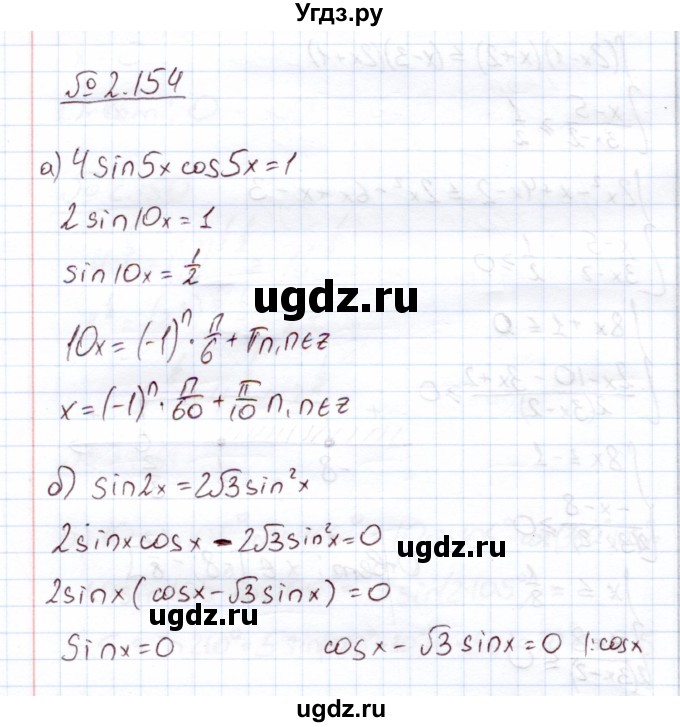 Угдз.ру
№ 2.154
а) 4 sin5x cos5x=1
2 sin10x=1
sin10x=1/2
ugdz.ru
10x=(-1)^n · π/6 + πn, n∈z
x=(-1)^n · π/60 + π/10 n, n∈z
б) sin2x=2√3 sin²x
2sinxcosx - 2√3 sin²x=0
ugdz.ru
2sinx(cosx-√3 sinx)=0
ugdz.ru
sinx=0 cosx-√3 sinx=0 |:cosx
ugdz.ru